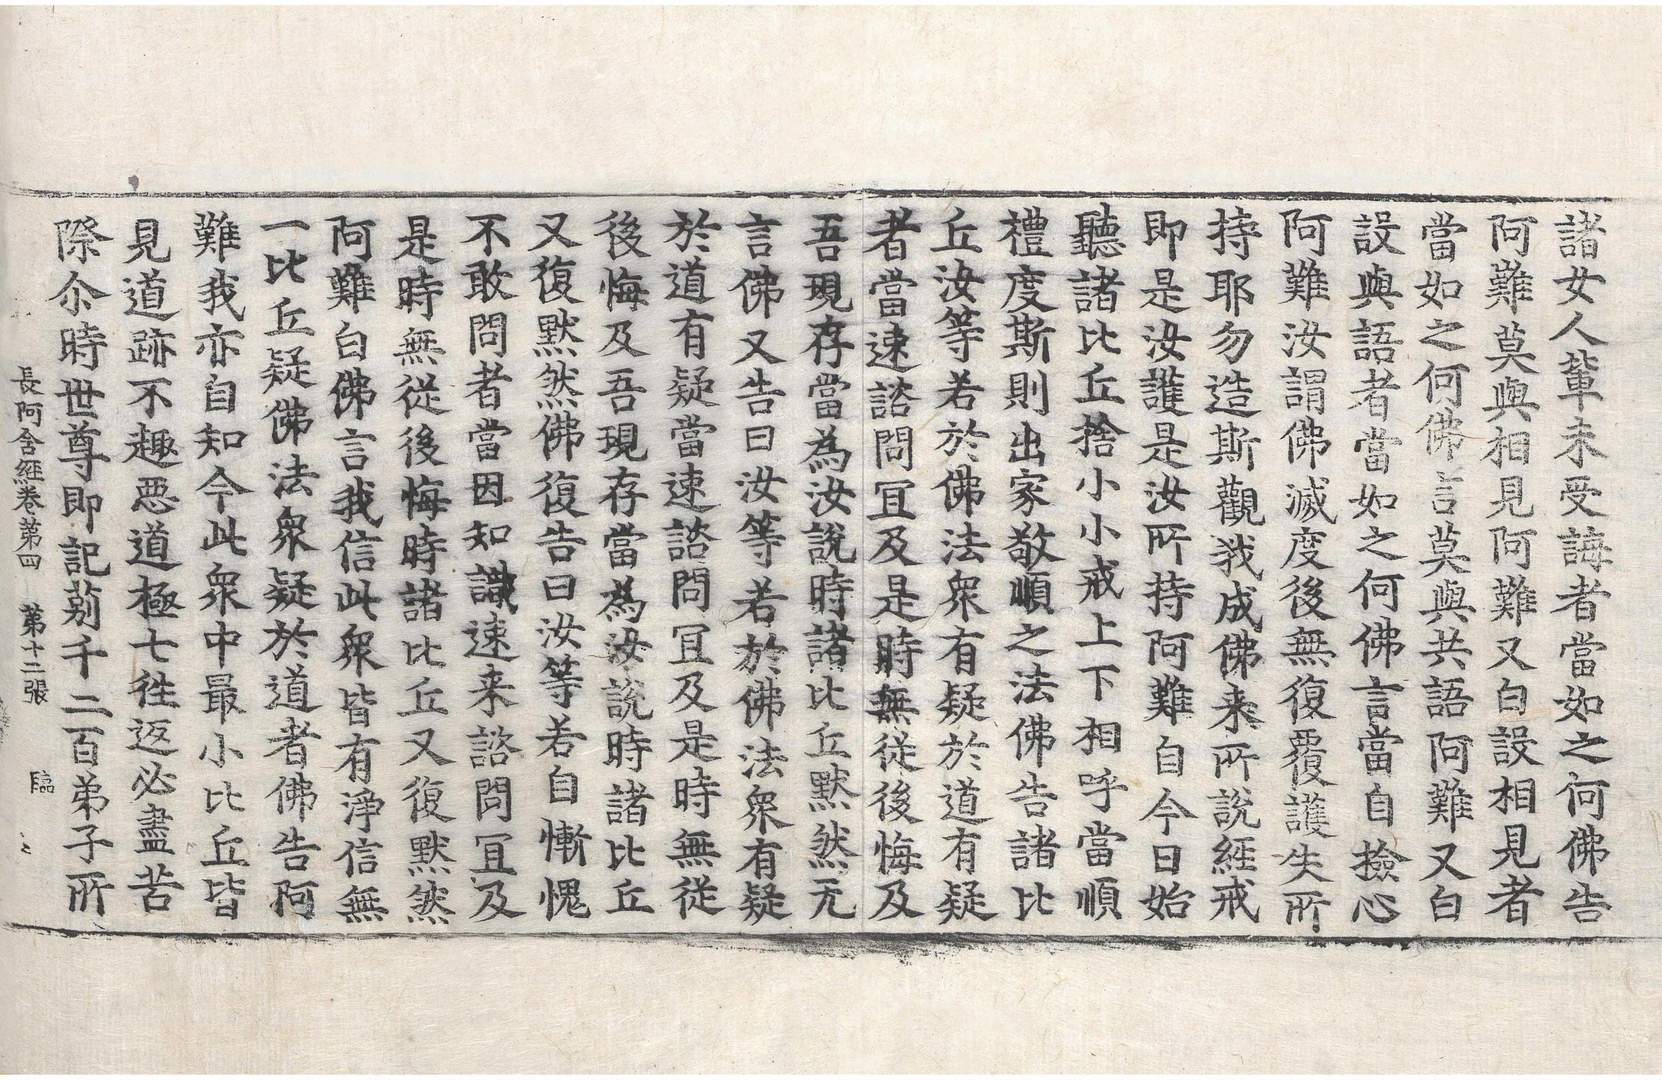 諸女人輩未受誨者當如之何佛告
阿難莫與相見阿難又白設相見者
當如之何佛言莫與共語阿難又白
設與語者當如之何佛言當自撿心
阿難汝謂佛滅度後無復覆護失所
持耶勿造斯觀我成佛来所說經戒
即是汝護是汝所持阿難自今日始
聽諸比丘捨小小戒上下相呼當順
禮度斯則出家敬順之法佛告諸比
丘汝等若於佛法衆有疑於道有疑
者當速諮問冝及是時無從後悔及
吾現存當為汝說時諸比丘默然无
言佛又告曰汝等若於佛法衆有疑
於道有疑當速諮問冝及是時無從
後悔及吾現存當為汝說時諸比丘
又復默然佛復告曰汝等若自慚愧
不敢問者當因知識速来諮問冝及
是時無從後悔時諸比丘又復默然
阿難白佛言我信此衆皆有淨信無
一比丘疑佛法衆疑於道者佛告阿
難我亦自知今此衆中最小比丘皆
見道跡不趣惡道極七往返必盡苦
際尒時世尊即記莂千二百弟子所
長阿含經卷第四 第十二張 臨